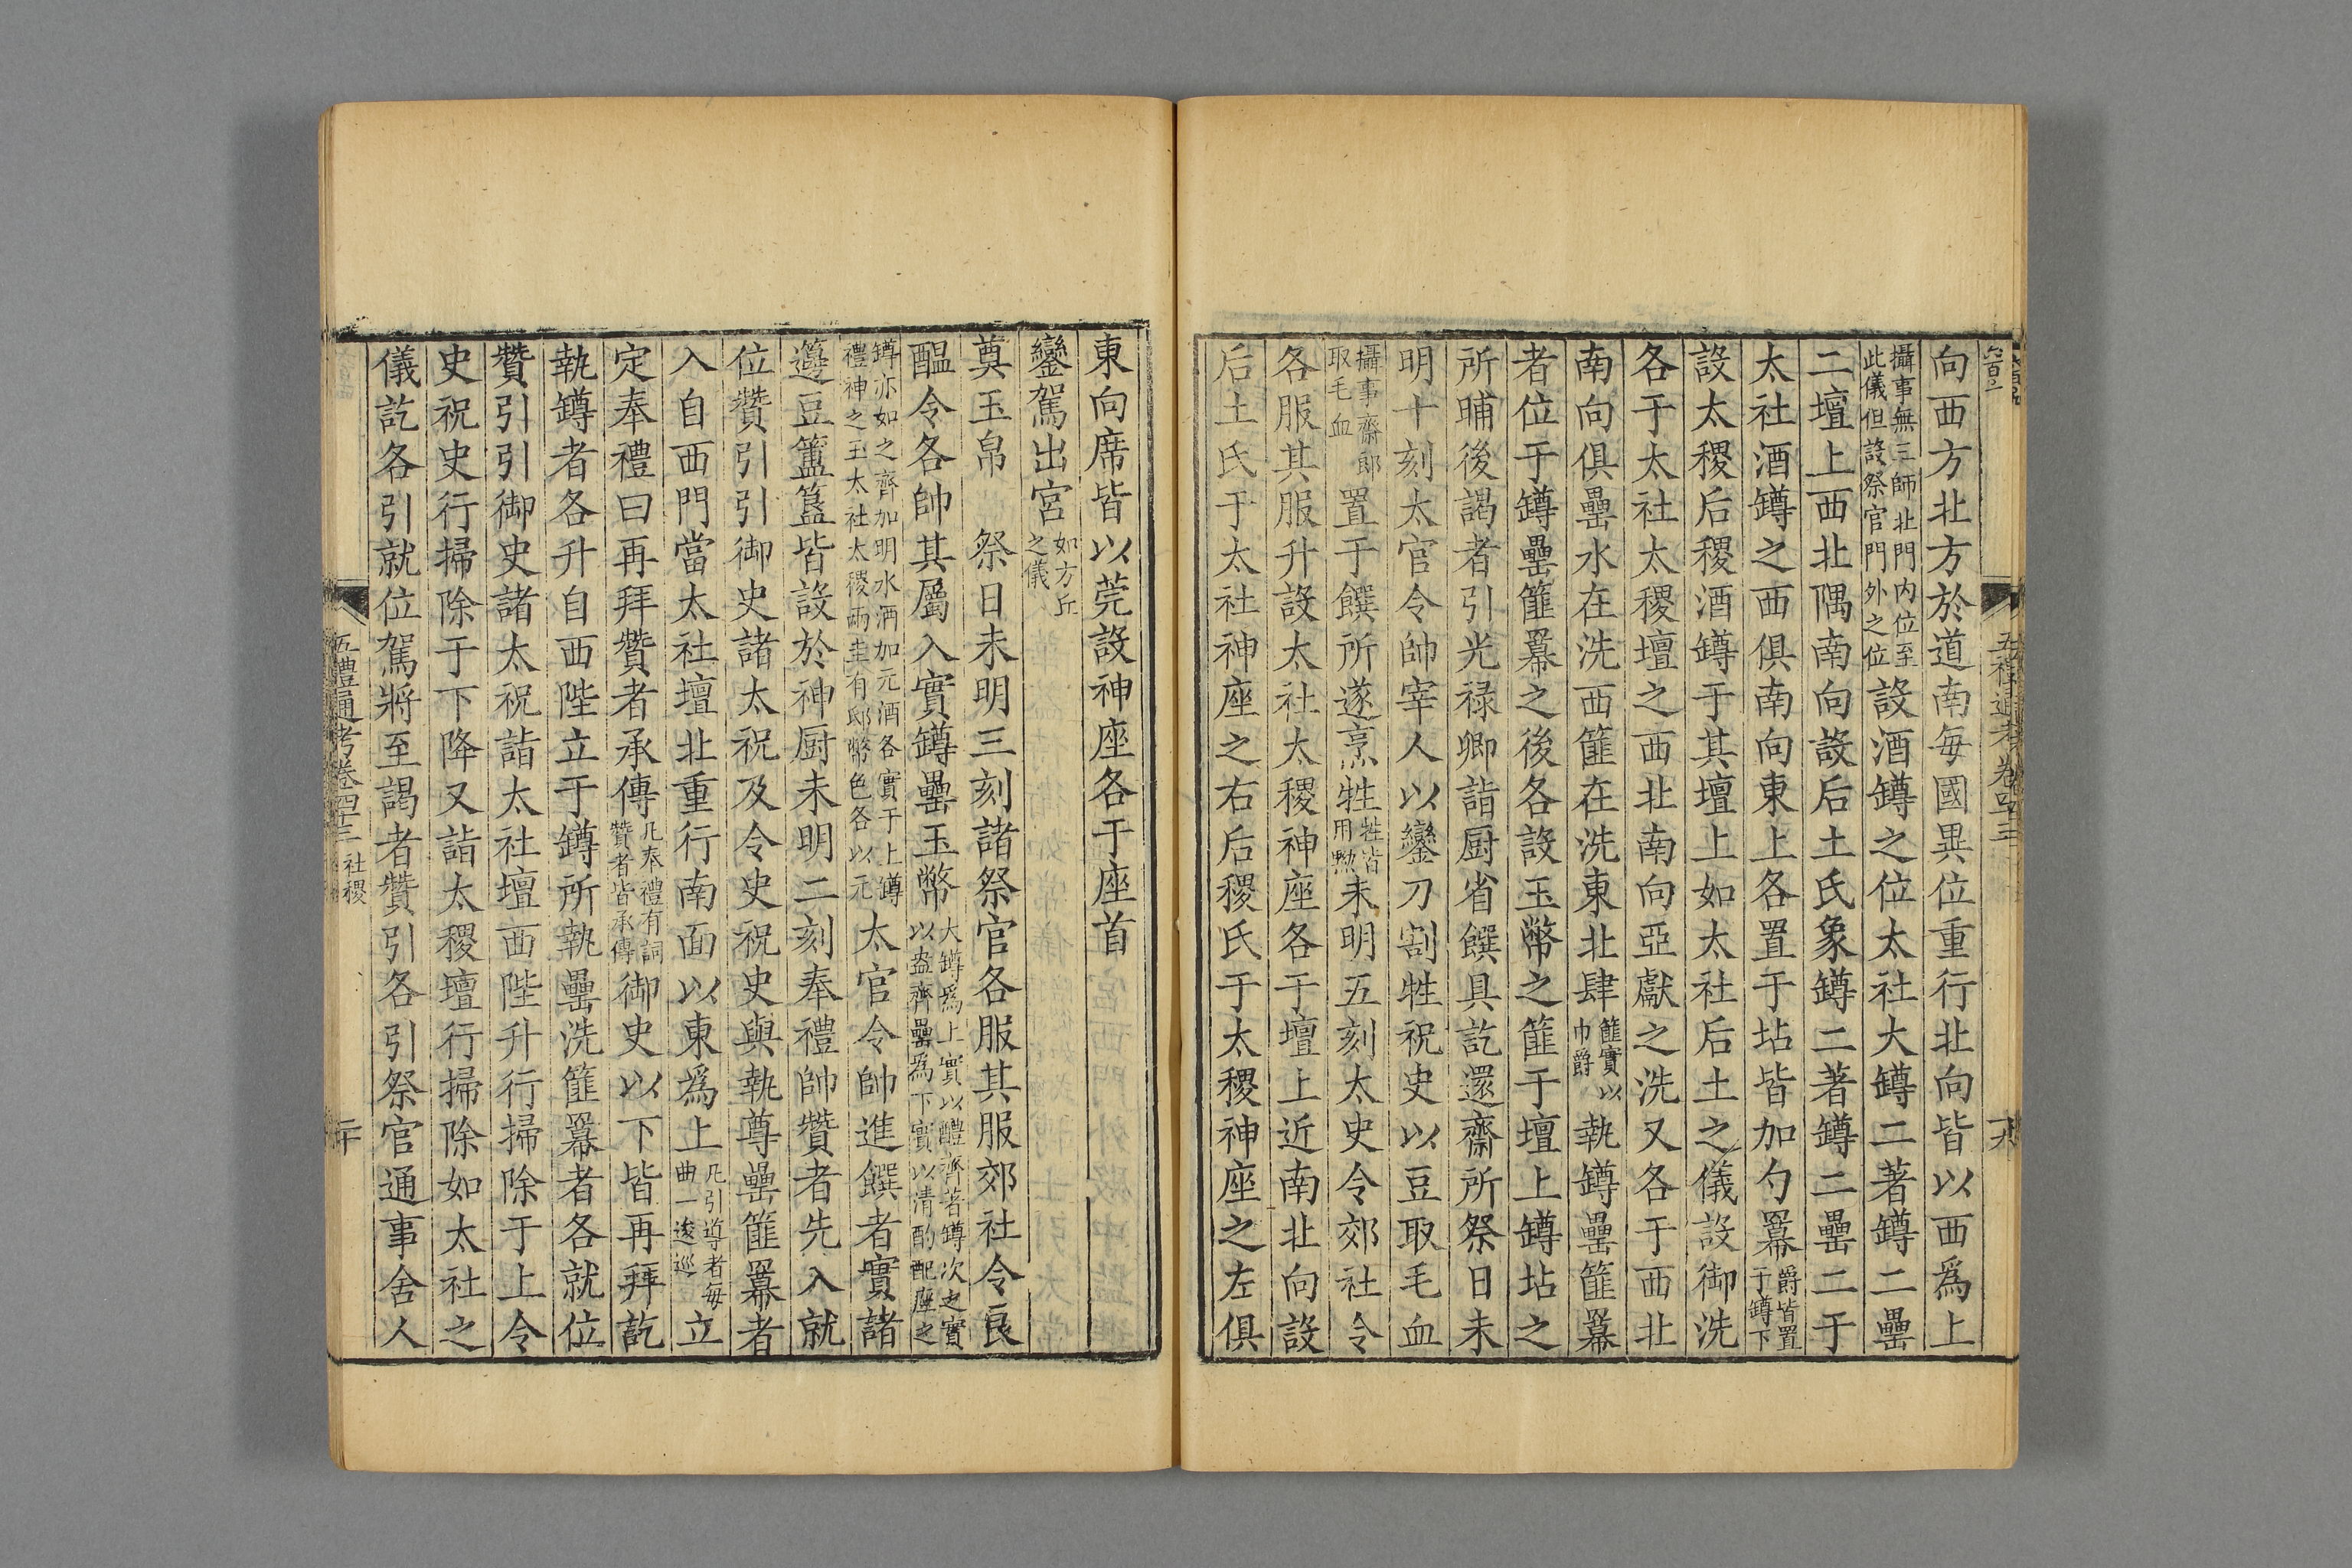 向西方北方於道南每國異位重行北向皆以西爲上
攝事無三師北門内位至此儀但設祭官門外之位設酒罇之位太社大罇二著罇二罍
二壇上西北隅南向設后土氏象罇二著罇二罍二于
太社酒罇之西俱南向東上各置于坫皆加勺羃爵皆置于罇下
設太稷后稷酒罇于其壇上如太社后土之儀設御洗
各于太社太稷壇之西北南向亞獻之洗又各于西北
南向俱罍水在洗西篚在洗東北肆篚實以巾爵執罇罍篚羃
者位于罇罍篚羃之後各設玉幣之篚于壇上罇坫之
所晡後謁者引光禄卿詣厨省饌具訖還齋所祭日未
明十刻太官令帥宰人以鑾刀割牲祝史以豆取毛血
攝事齋郎取毛血置于饌所遂烹牲牲皆用黝未明五刻太史令郊社令
各服其服升設太社太稷神座各于壇上近南北向設
后土氏于太社神座之右后稷氏于太稷神座之左俱
五禮通考卷四十三
東向席皆以莞設神座各于座首
鑾駕出宮如方丘之儀
奠玉帛 祭日未明三刻諸祭官各服其服郊社令良
醖令各帥其屬入實罇罍玉幣大罇爲上實以醴齊著罇次之實以盎齊罍爲下實以清酌配座之
罇亦如之齊加明水酒加元酒各實于上罇禮神之玉太社太稷兩圭有邸幣色各以元太官令帥進饌者實諸
籩豆簠簋皆設於神厨未明二刻奉禮帥贊者先入就
位贊引引御史諸太祝及令史祝史與執尊罍篚羃者
入自西門當太社壇北重行南面以東爲上凡引導者每曲一逡巡立
定奉禮曰再拜贊者承傳凡奉禮有詞贊者皆承傳御史以下皆再拜訖
執罇者各升自西陛立于罇所執罍洗篚羃者各就位
贊引引御史諸太祝詣太社壇西陛升行掃除于上令
史祝史行掃除于下降又詣太稷壇行掃除如太社之
儀訖各引就位駕將至謁者贊引各引祭官通事舍人
五禮通考卷四十三 社稷 二十